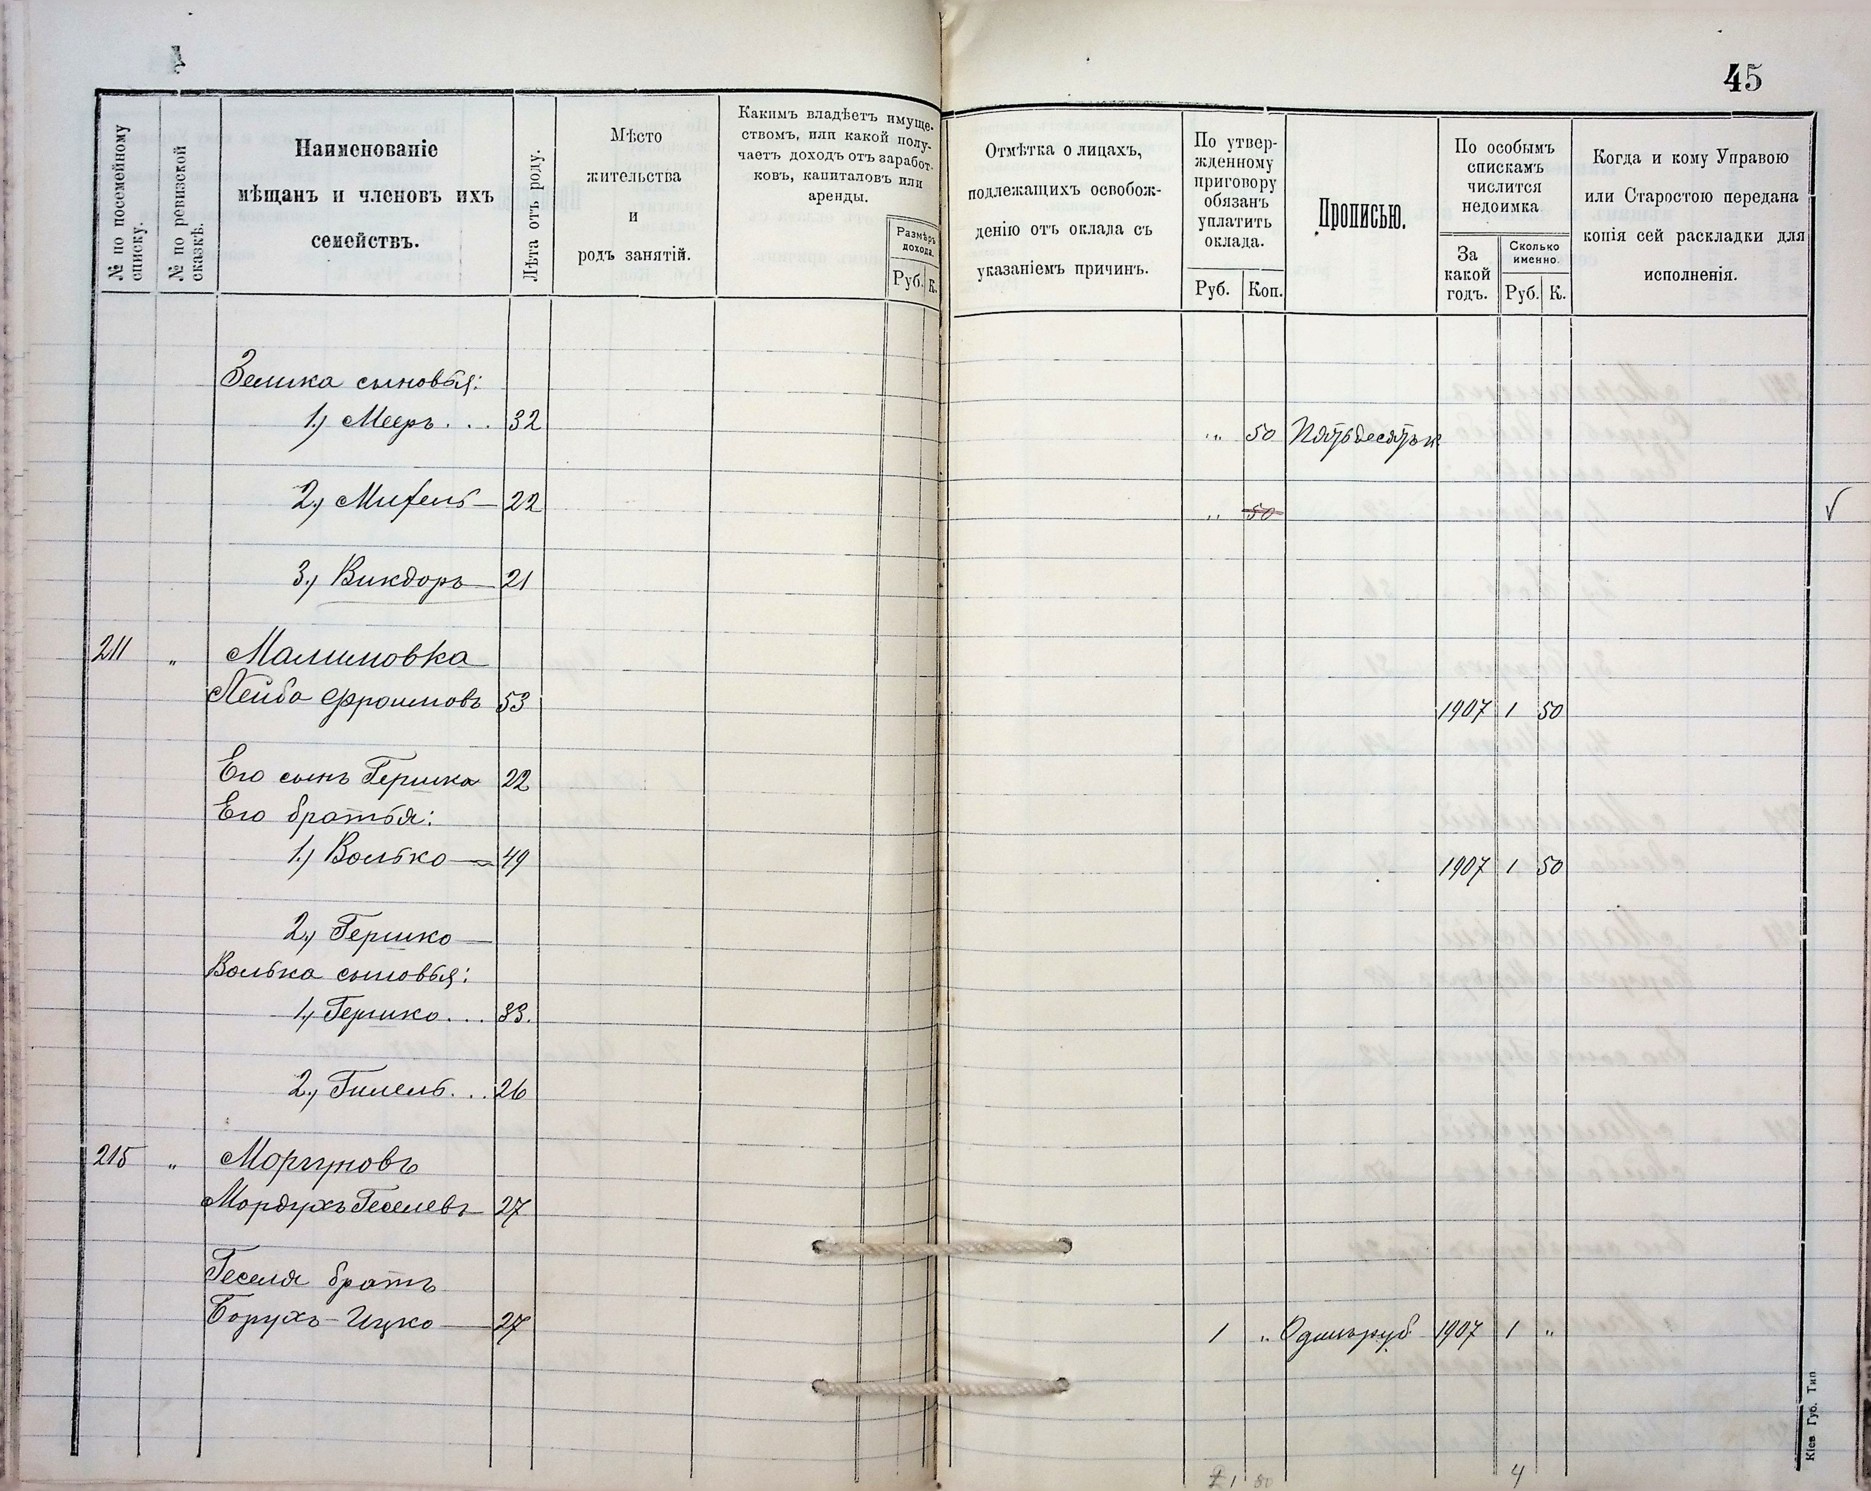 45
№ по посемейному списку.
№ по ревизской сказкѣ.
Наименованіе
мѣщанъ и членовъ ихъ
семействъ.
Лѣта отъ роду.
Мѣсто
жительства
и
родъ занятій.
Какимъ владѣетъ имуще-
ствомъ, или какой полу-
чаетъ доходъ отъ заработ-
ковъ, капиталовъ или
аренды.
Размѣръ
дохода.
Руб. К.
Отмѣтка о лицахъ,
подлежащихъ освобож-
денію отъ оклада съ
указаніемъ причинъ.
По утвер-
жденному
приговору
обязанъ
уплатить
оклада.
Руб. Коп.
Прописью.
По особымъ
спискамъ
числится
недоимка
За
какой
годъ.
Сколько
именно.
Руб. К.
Когда и кому Управою
или Старостою передана
копія сей раскладки для
исполненія.
Зелика сыновья:
1.) Мееръ . . . 32 „ 50 Пятьдесятъ к
2.) Михель 22 „ 50
3.) Викдоръ 21
211 „ Малиновка
Лейба Фроимовъ 53 1907 1 50
Его сынъ Гершка 22
Его братья:
1.) Волько 49 1907 1 50
2.) Гершко
Волька сыновья:
1.) Гершко . . . 33.
2.) Гилель . . . 26
215 „ Моргуновъ
Мордухъ Геселевъ 27
Геселя братъ
Борухъ-Ицко 27 1 „ Одинъ руб. 1907 1 „
1 50 4
Кіев Губ. Тип